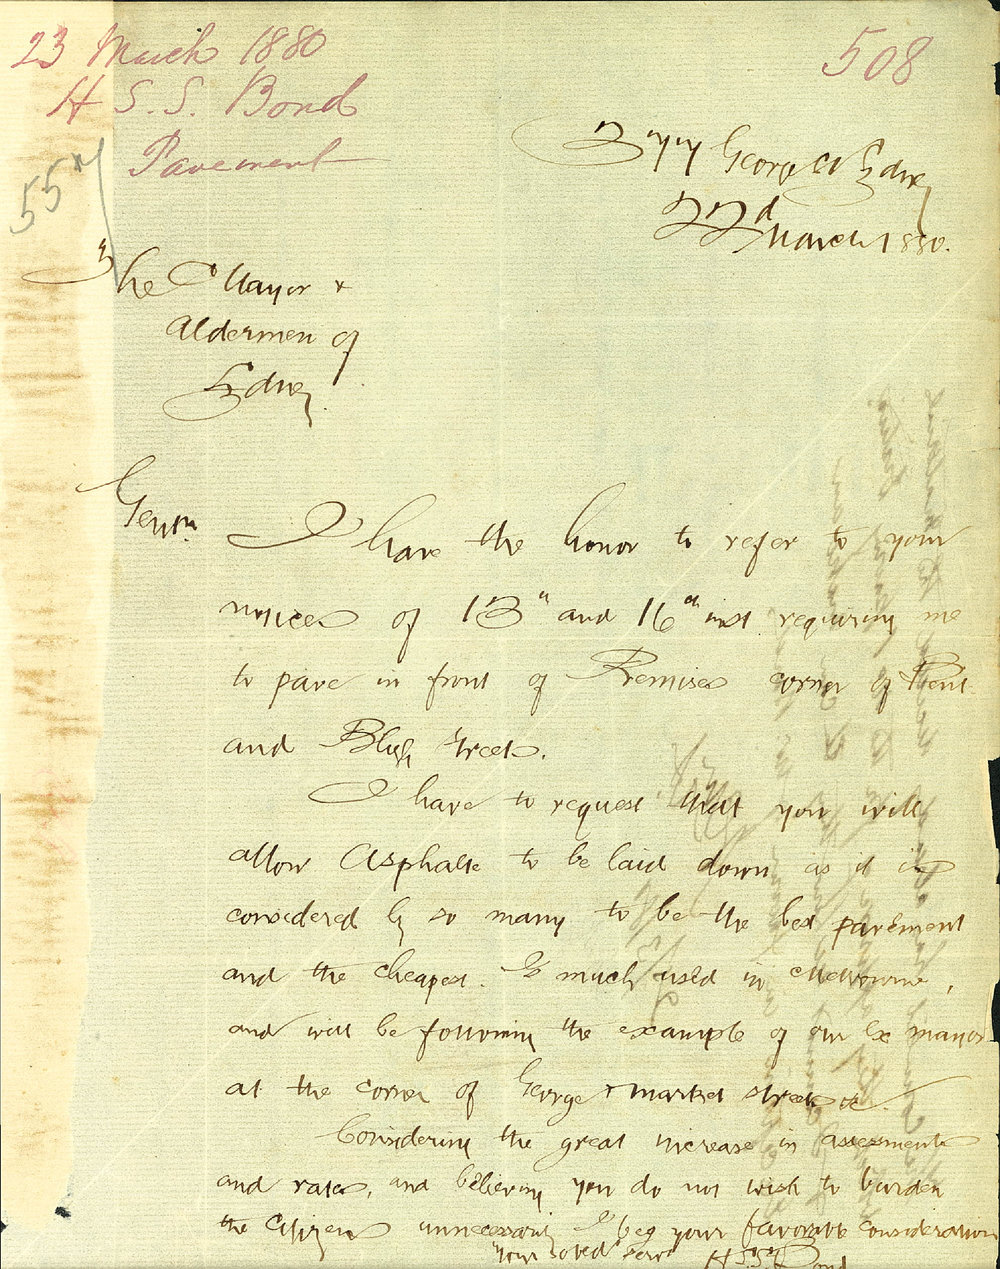 23 March 1880
508
H S. S. Bond
Pavement
377 George St Sydney
22d March 1880.
The Mayor &
Aldermen of
Sydney.
Gentn
I have the honor to refer to your
notices of 13th and 16th inst requiring me
to pave in front of Premises corner of Bent
and Bligh Street.
I have to request that you will
allow Asphalte to be laid down as it is
considered by so many to be the best pavement
and the cheapest. Is much used in Melbourne,
and will be following the example of our Ex Mayor
at the corner of George & Market Streets &c.
Considering the great increase in assessments
and rates, and believing you do not wish to burden
the Citizens unnecessarily I beg your favorable consideration
Your obed Serv H S. S. Bond